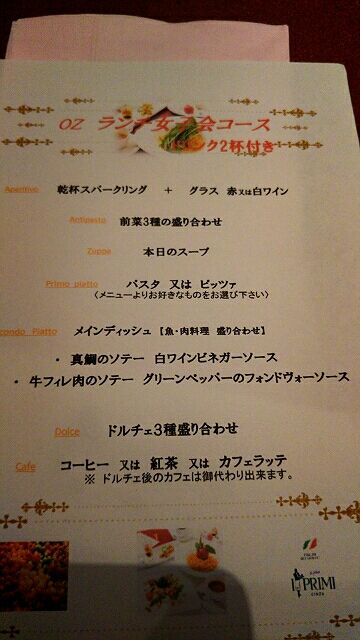 OZ ランチ女子会コース
ク2杯付き
Aperitivo 乾杯スパークリング + グラス 赤又は白ワイン
Antipasto 前菜3種の盛り合わせ
Zuppa 本日のスープ
Primo piatto パスタ 又は ピッツァ
(メニューよりお好きなものをお選び下さい)
condo Piatto メインディッシュ 【魚・肉料理 盛り合わせ】
・ 真鯛のソテー 白ワインビネガーソース
・ 牛フィレ肉のソテー グリーンペッパーのフォンドヴォーソース
Dolce ドルチェ3種盛り合わせ
Cafe コーヒー 又は 紅茶 又は カフェラッテ
※ ドルチェ後のカフェは御代わり出来ます。
PRIMI
GINZA